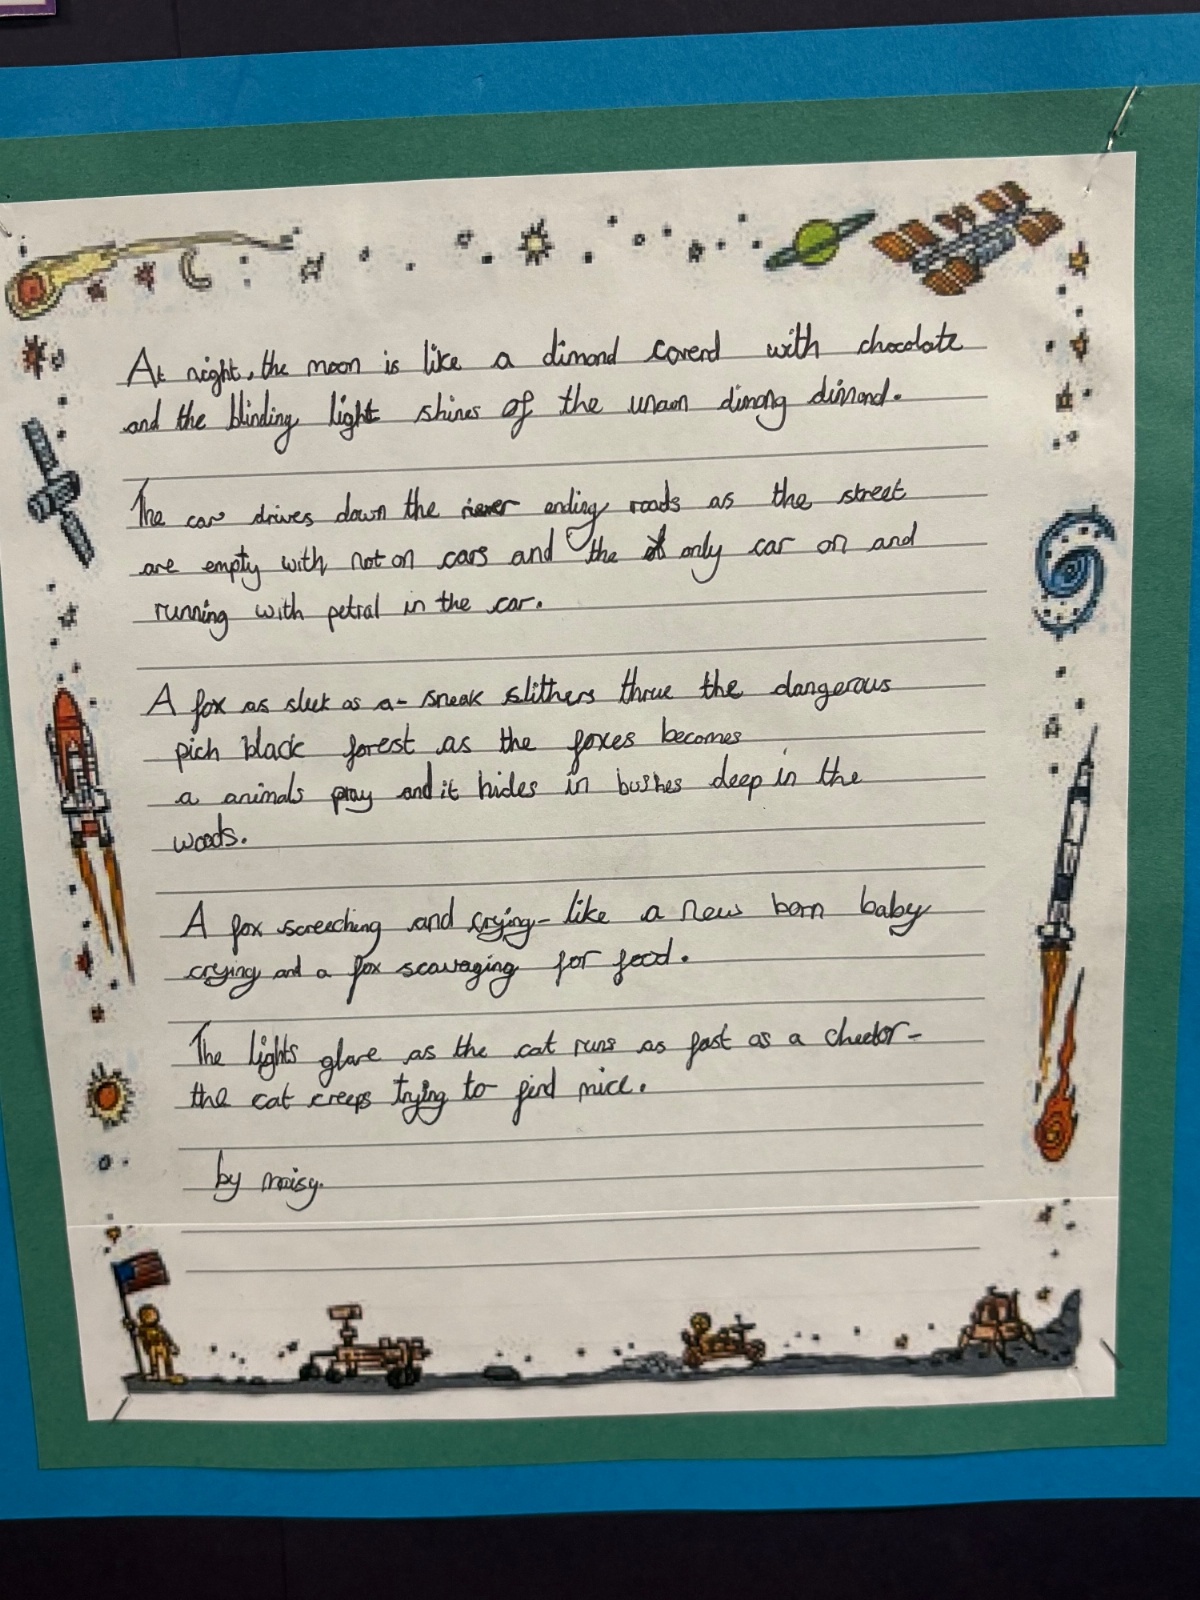 At night, the moon is like a dimond coverd with chocolate
and the blinding light shines of the dimong dimond.
The car drives down the never ending roads as the street
are empty with not on cars and the only car on and
running with petral in the car.
A fox as sleek as a sneak slithers thrue the dangerous
pich black forest as the foxes becomes
a animals pray and it hides in bushes deep in the
woods.
A fox screeching and crying- like a new born baby
crying and a fox scavaging for food.
The lights glare as the cat runs as fast as a cheetor-
the cat creeps trying to find mice.
by maisy.